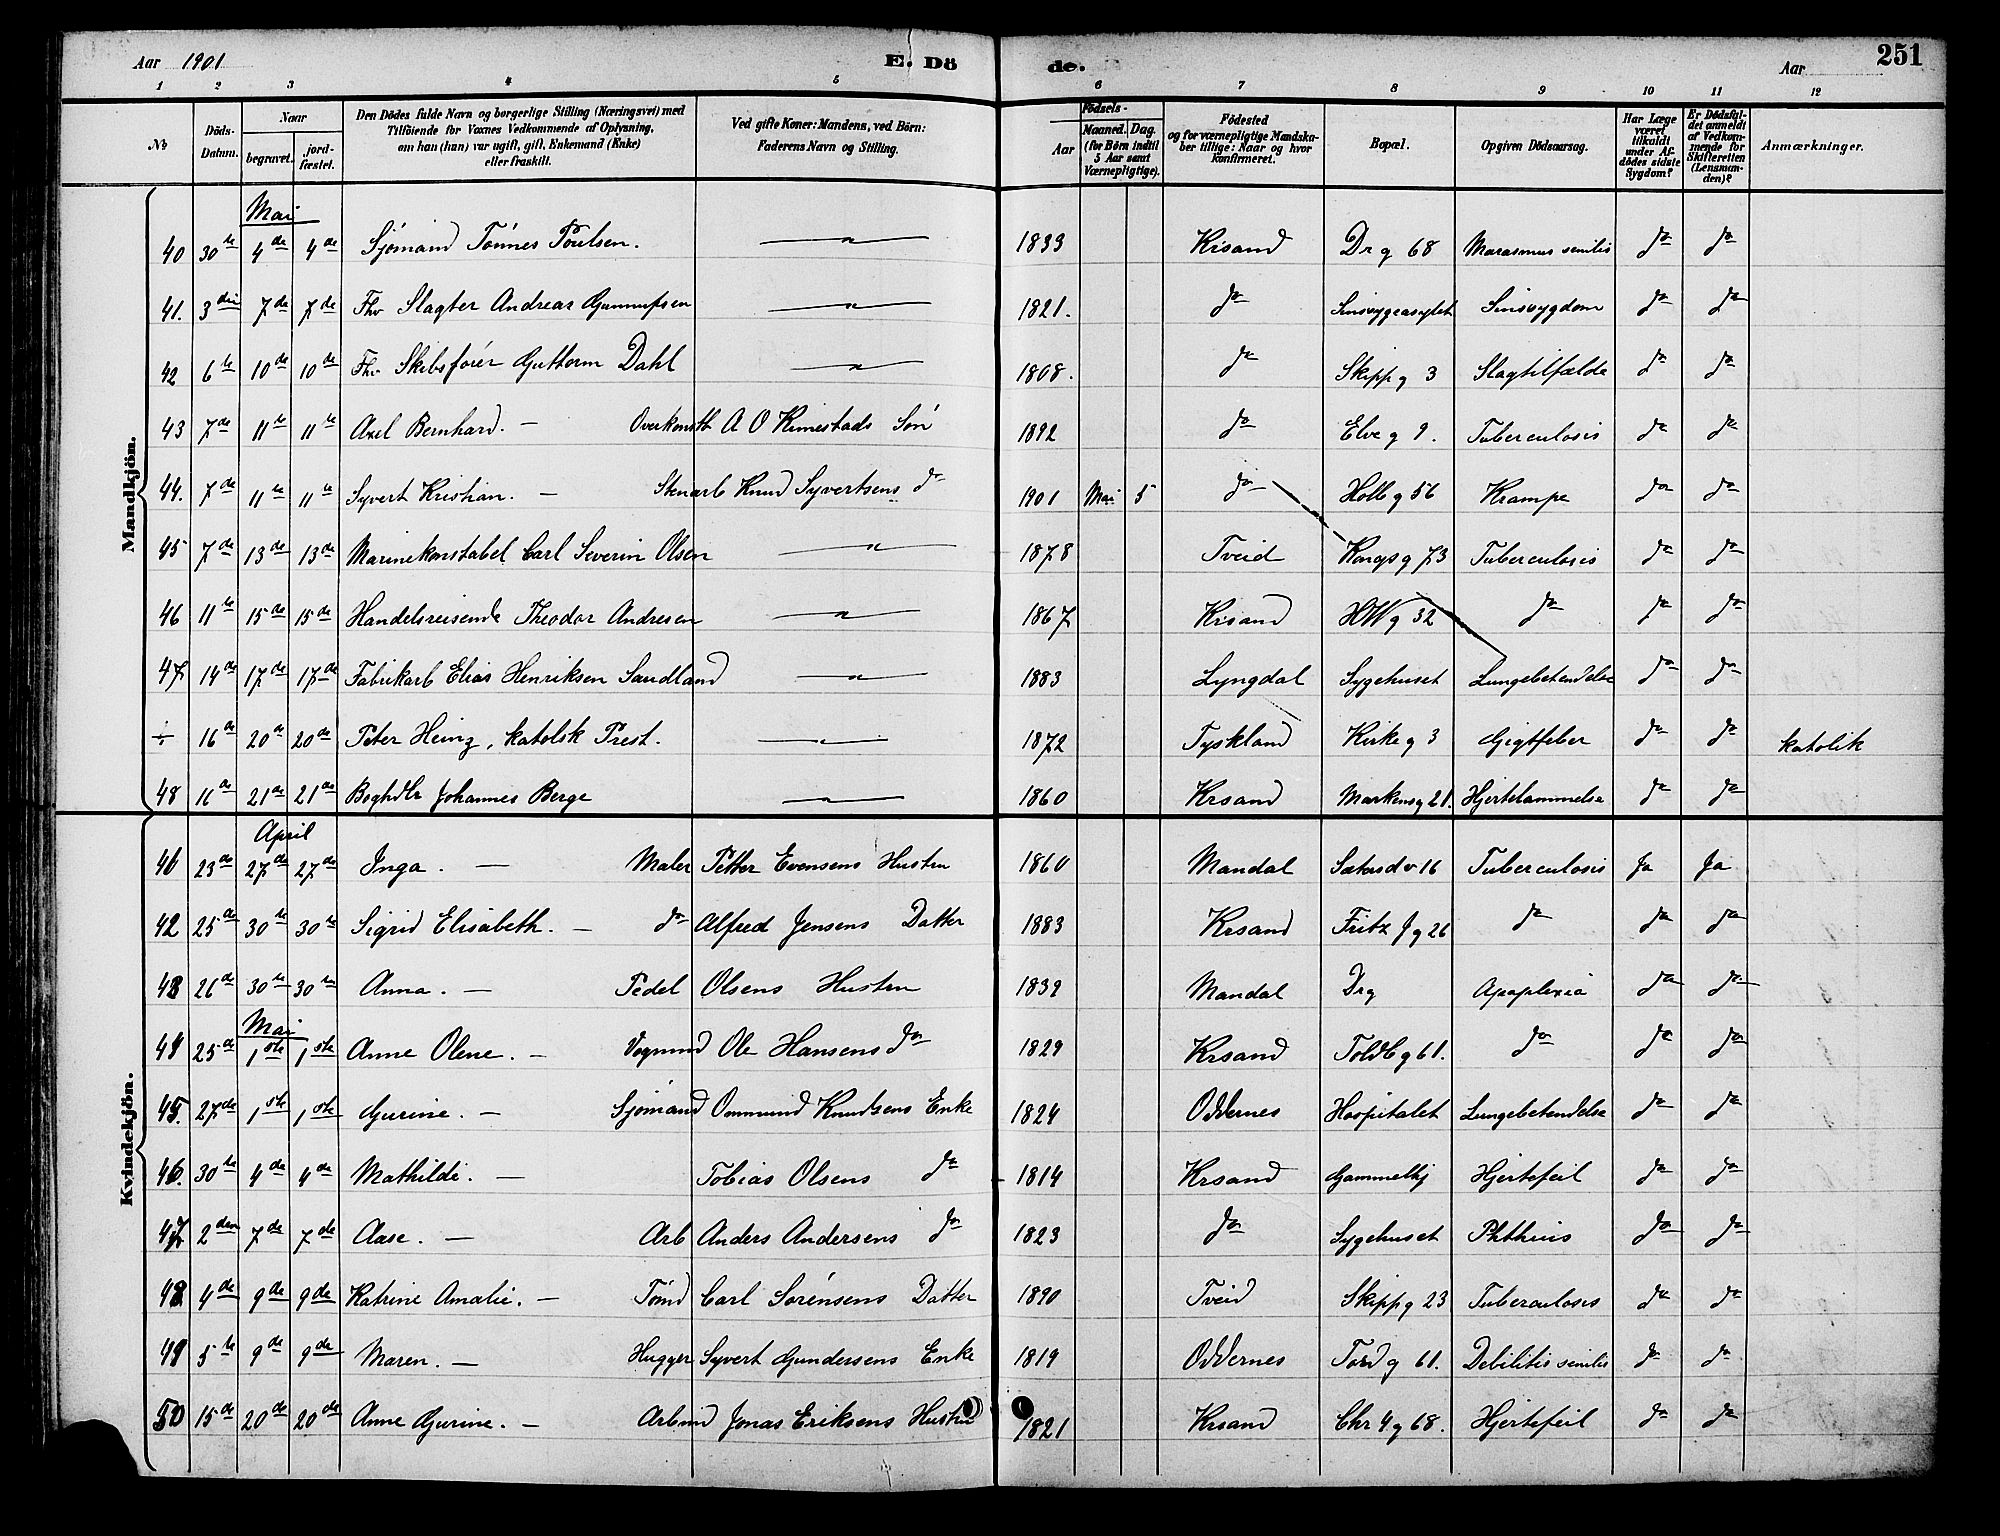 Aar 1901 E. Dö de. Aar 251
1 2 3 4 5 6 7 8 9 10 11 12
No Döds-Datum. Naar begravet. jord-fæstet. Den Dödes fulde Navn og borgerlige Stilling (Næringsvei) med Tilföiende for Voxnes Vedkommende af Oplysning, om han (hun) var ugift, gift, Enkemand (Enke) eller fraskilt. Ved gifte Koner: Mandens, ved Börn: Faderens Navn og Stilling. Födsels- Aar Maaned. Dag. (for Börn indtil 5 Aar samt Værnepligtige). Födested og for værnepligtige Mandskaber tillige: Naar og hvor konfirmeret. Bopæl. Opgiven Dödsaarsag. Har Læge været tilkaldt under Afdödes sidste Sygdom? Er Dödsfaldet anmeldt af Vedkommende for Skifteretten (Lensmanden)? Anmærkninger.
Mandkjön.
Mai
40 30te 4de 4de Sjömand Tönnes Poulsen. 1833 Krsand Dr g 68 Marasmus senilis do do
41. 3die 7de 7de Fhv Slagter Andreas Gunnufsen 1821. do Sinsygeasylet Sinsygdom do do
42 6te 10de 10de Fhv Skibsförer Guttorm Dahl 1808. do Skipp g 3 Slagtilfælde do do
43 7de 11te 11te Axel Bernhard. — Overkonstb A O Rimestads Sön 1892 do Elve g 9. Tuberculosis do do
44. 7de 11te 11te Syvert Kristian. — Stenarb Knud Syvertsens do 1901 Mai 5 do Holb g 56 Krampe do do
45 7de 13de 13de Marinekonstabel Carl Severin Olsen 1878 Tveid Kongs g 73 Tuberculosis do do
46 11te 15de 15de Handelsreisende Theodor Andresen 1867 Krsand HW g 32 do do do
47 14de 17de 17de Fabrikarb Elias Henriksen Sandland 1883 Lyngdal Sygehuset Lungebetendelse do do
÷ 16de 20de 20de Peter Heinz, katolsk Prest. 1872 Tyskland Kirke g 3 Gigtfeber do do katolik
48 16de 21de 21de Boghdlr Johannes Berge 1860 Krsand Markens g 21. Hjertelammelse do do
Kvindekjön.
April
41 23de 27de 27de Inga. — Maler Petter Evensens Hustru 1860 Mandal Sætersd v 16 Tuberculosis Ja Ja
42 25de 30te 30te Sigrid Elisabeth. — do Alfred Jensens Datter 1883 Krsand Fritz J g 26 do do do
43 26de 30te 30te Anna. — Pedel Olsens Hustru 1839 Mandal Drg Apoplexia do do
Mai
44 25de 1ste 1ste Anne Olene. — Vognmd Ole Hansens do 1829 Krsand Toldb g 61. do do do
45. 27de 1ste 1ste Gurine. — Sjömand Ommund Knudsens Enke 1824 Oddernes Hospitalet Lungebetendelse do do
46. 30te 4de 4de Mathilde. — Tobias Olsens do 1814 Krsand Gammelhj Hjertefeil do do
47 2den 7de 7de Aase. — Arb Anders Andersens do 1823 do Sygehuset Phthisis do do
48 4de 9de 9de Katrine Amalie. — Tömd Carl Sörensens Datter 1890 Tveid Skipp g 23 Tuberculosis do do
49 5te 9de 9de Maren. — Hugger Syvert Gundersens Enke 1819 Oddernes Tord g 61. Debilitis senilis do do
50 15de 20de 20de Anne Gurine. — Arbmd Jonas Eriksens Hustru 1821 Krsand Chr 4 g 68. Hjertefeil do do